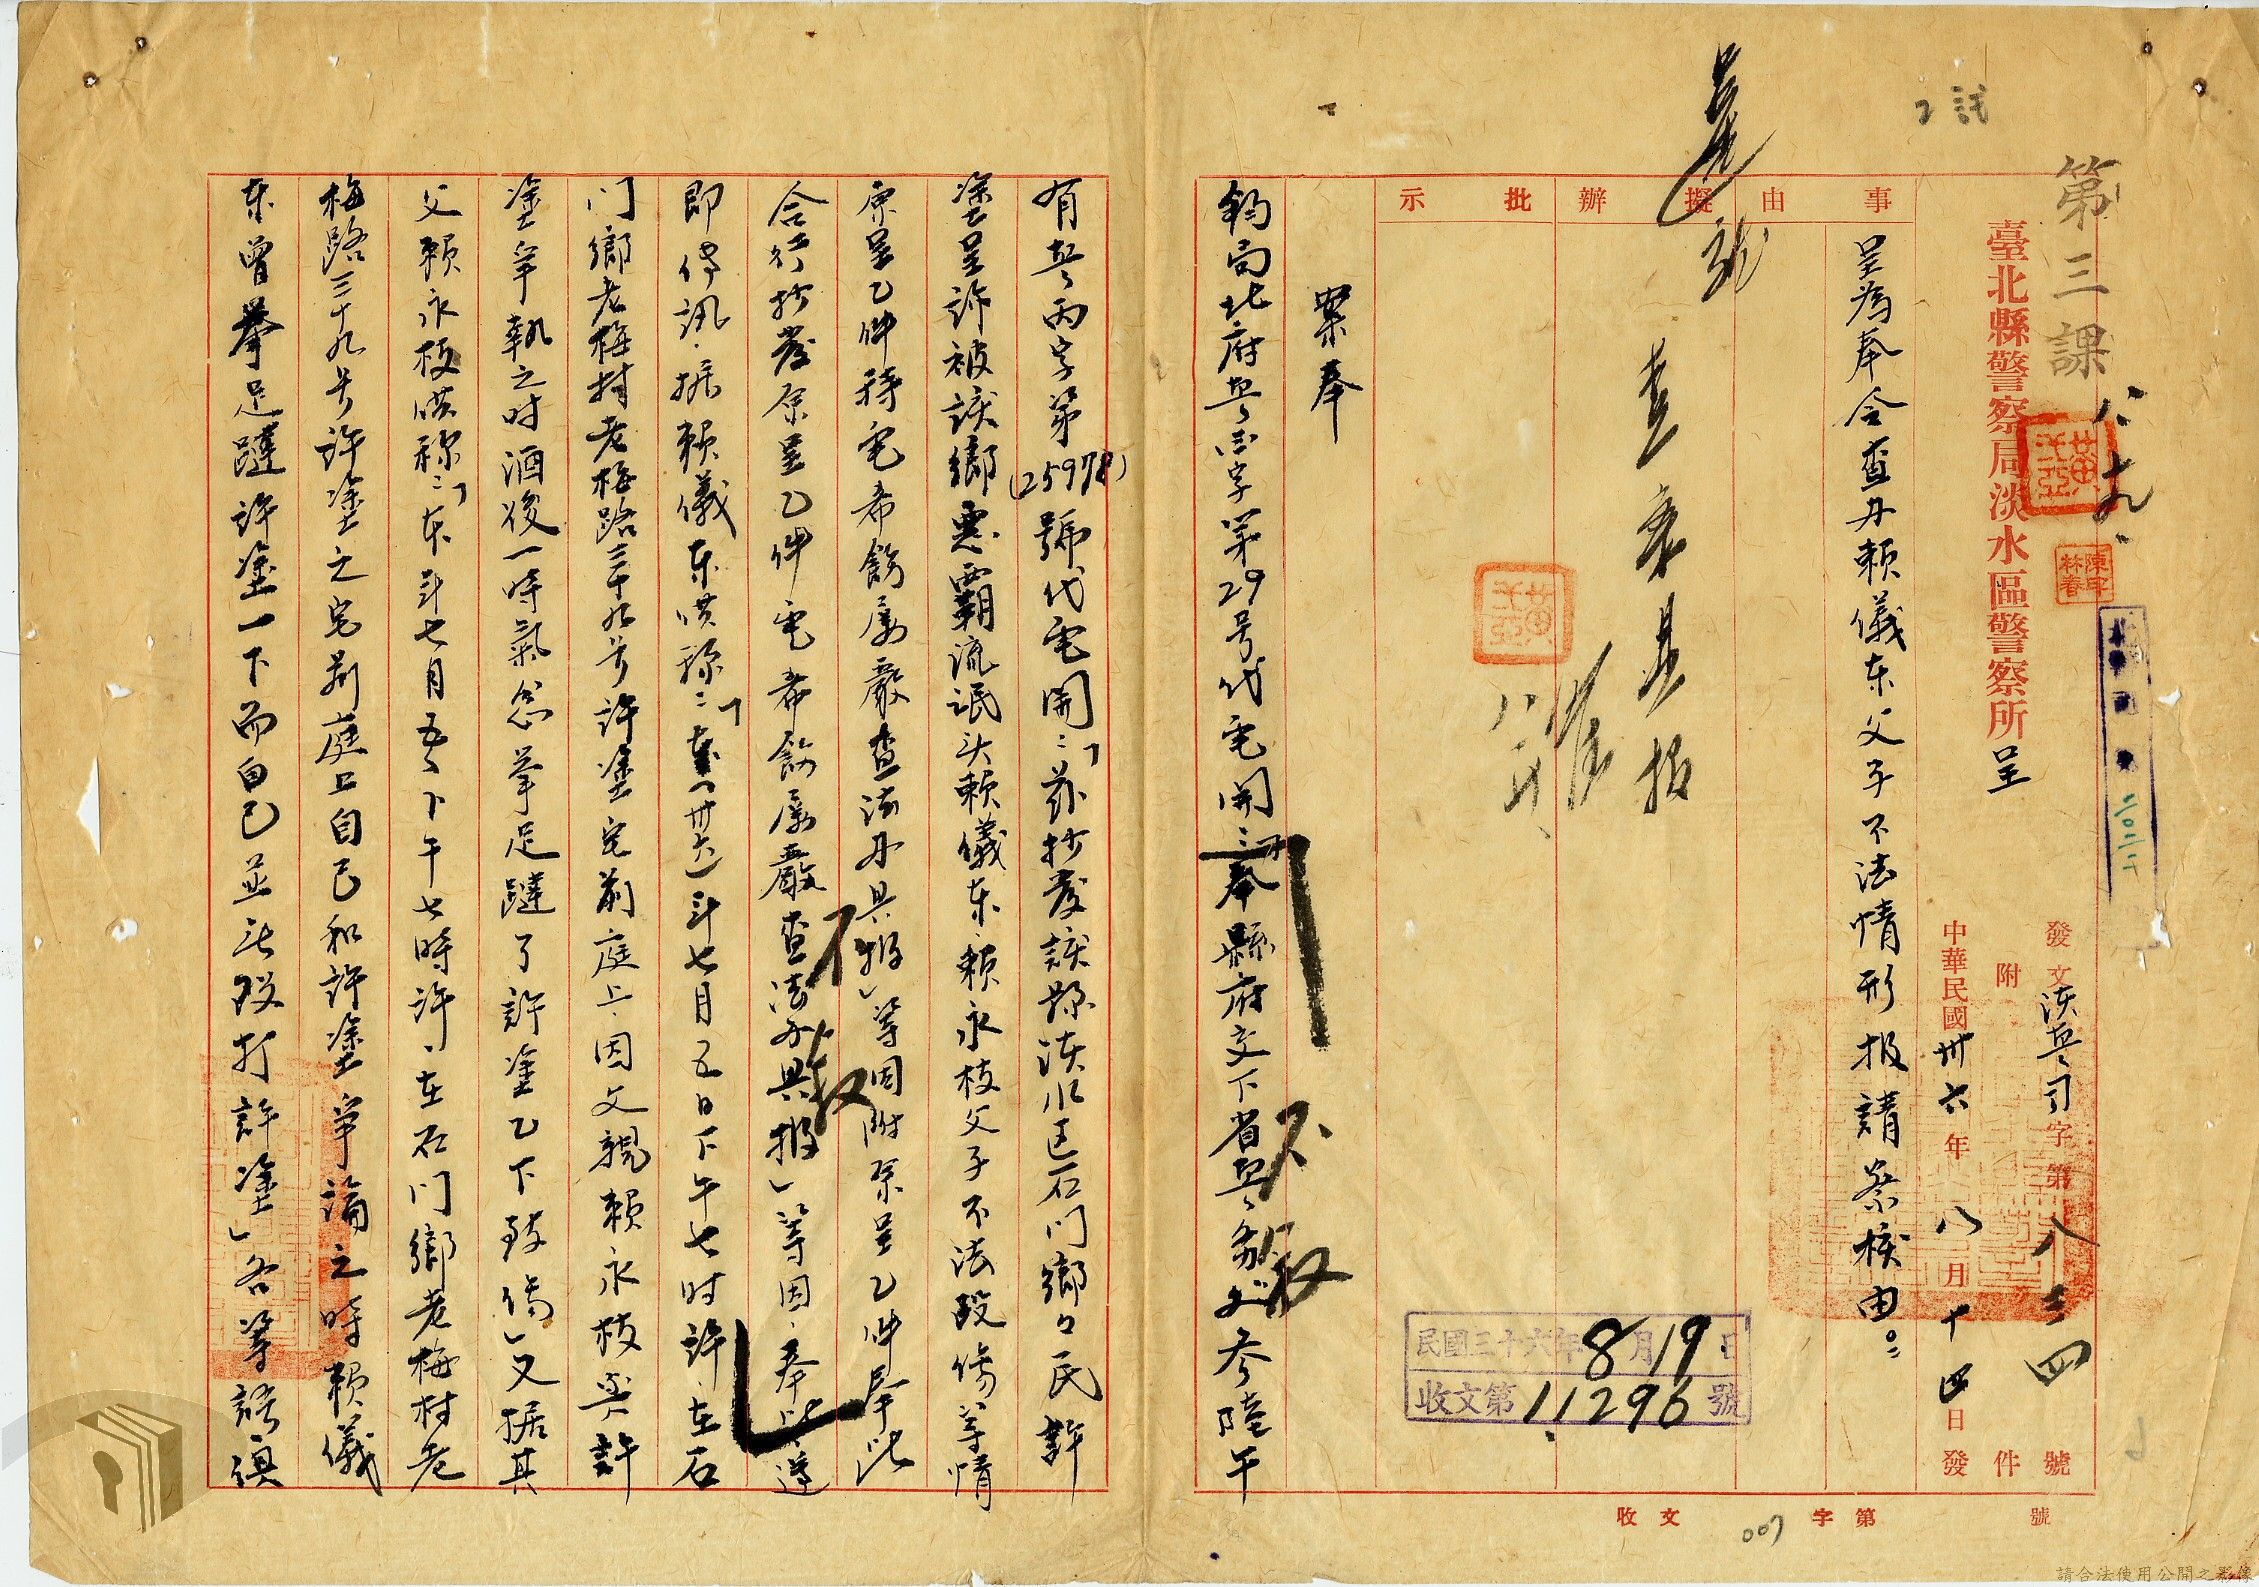 第三課
八、十九、
臺北縣警察局淡水區警察所呈
發文淡警司字第八三四號
附件
中華民國卅六年八月十四日發
事由
擬辦
批示
呈為奉令查办賴儀东父子不法情形报請察核由。
民國三十六年8月19日
收文第11296號
收文 字第 號
007
案奉
鈞局北府警司字第29号代电開：「奉縣府交下省警务处参陸午
有警丙字第(25978)號代电開：「兹抄發該縣淡水区石门鄉々民許
塗呈訴被該鄉惡霸流氓头賴儀东、賴永枝父子不法毆傷等情
原呈乙件特电希飭屬嚴查法办具报」等因附原呈乙件奉此
合行抄發原呈乙件电希飭屬嚴查法办具报」等因、奉此、遵
即傳訊、据賴儀东供称：「本(卅六)年七月五日下午七时許、在石
门鄉老梅村老梅路三十九号許塗宅前庭上、因父親賴永枝與許
塗爭執之时酒後一時氣忿拳足躂了許塗乙下致傷」又据其
父賴永枝供称：「本年七月五、下午七時許、在石门鄉老梅村老
梅路三十九号許塗之宅前庭上自己和許塗爭論之時賴儀
东曾拳足躂許塗一下而自己並無毆打許塗」各等語俱
請合法使用公開之影像